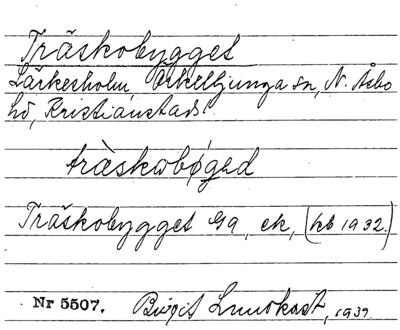 Träskobygget
Lärkesholm, Örkelljunga sn, N. Åsbo
hd, Kristianstads
träskobøgəd
Träskobygget Ga, ek, (kb 1932.)
Nr 5507. Birgit Lundkvist, 1939